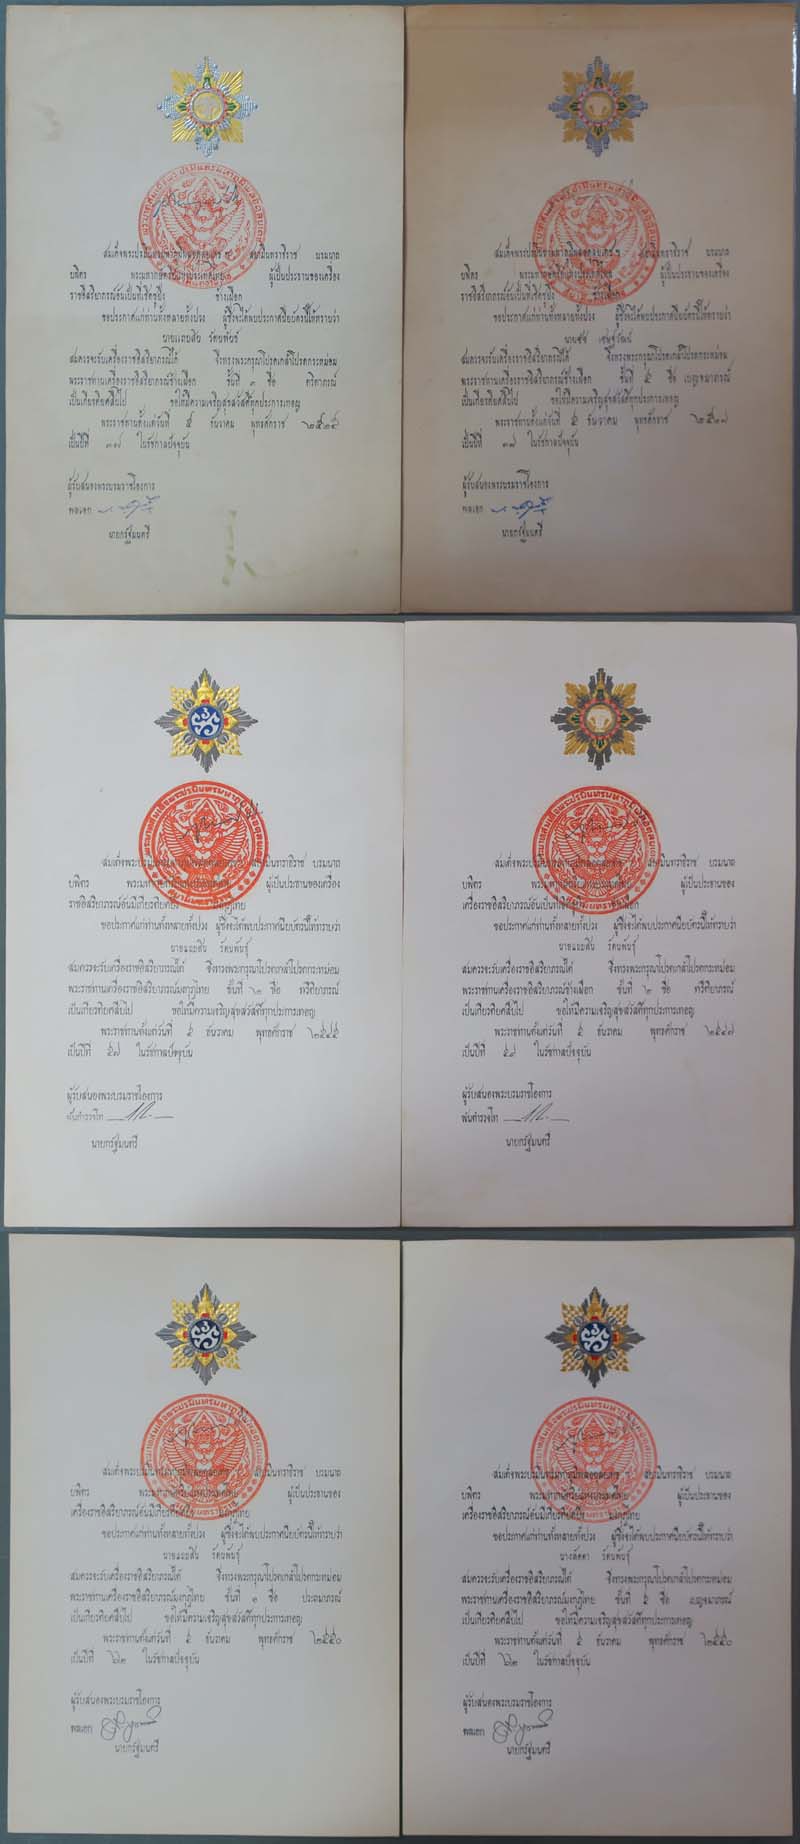 สมเด็จพระปรมินทรมหาภูมิพลอดุลยเดช ฯ สยามินทราธิราช บรมนาถ
บพิตร พระมหากษัตริย์แห่งประเทศไทย ผู้เป็นประธานของเครื่อง
ราชอิสริยาภรณ์อันเป็นที่เชิดชูยิ่ง ช้างเผือก
ขอประกาศแก่ท่านทั้งหลายทั้งปวง ผู้ซึ่งจะได้พบประกาศนียบัตรนี้ให้ทราบว่า
สมควรจะรับเครื่องราชอิสริยาภรณ์ได้ จึ่งทรงพระกรุณาโปรดเกล้าโปรดกระหม่อม
พระราชทานเครื่องราชอิสริยาภรณ์ช้างเผือก ชั้นที่ ๓ ชื่อ ตริตาภรณ์
เป็นเกียรติยศสืบไป ขอให้มีความเจริญสุขสวัสดิ์ทุกประการเทอญ
พระราชทานตั้งแต่วันที่ ๕ ธันวาคม พุทธศักราช
เป็นปีที่ ๓๗ ในรัชกาลปัจจุบัน
ผู้รับสนองพระบรมราชโองการ
พลเอก
นายกรัฐมนตรี
สมเด็จพระปรมินทรมหาภูมิพลอดุลยเดช ฯ สยามินทราธิราช บรมนาถ
บพิตร พระมหากษัตริย์แห่งประเทศไทย ผู้เป็นประธานของเครื่อง
ราชอิสริยาภรณ์อันเป็นที่เชิดชูยิ่ง ช้างเผือก
ขอประกาศแก่ท่านทั้งหลายทั้งปวง ผู้ซึ่งจะได้พบประกาศนียบัตรนี้ให้ทราบว่า
สมควรจะรับเครื่องราชอิสริยาภรณ์ได้ จึ่งทรงพระกรุณาโปรดเกล้าโปรดกระหม่อม
พระราชทานเครื่องราชอิสริยาภรณ์ช้างเผือก ชั้นที่ ๕ ชื่อ เบญจมาภรณ์
เป็นเกียรติยศสืบไป ขอให้มีความเจริญสุขสวัสดิ์ทุกประการเทอญ
พระราชทานตั้งแต่วันที่ ๕ ธันวาคม พุทธศักราช
เป็นปีที่ ๓๗ ในรัชกาลปัจจุบัน
ผู้รับสนองพระบรมราชโองการ
พลเอก
นายกรัฐมนตรี
สมเด็จพระปรมินทรมหาภูมิพลอดุลยเดช ฯ สยามินทราธิราช บรมนาถ
บพิตร พระมหากษัตริย์แห่งประเทศไทย ผู้เป็นประธานของเครื่อง
ราชอิสริยาภรณ์อันมีเกียรติยศยิ่ง มงกุฎไทย
ขอประกาศแก่ท่านทั้งหลายทั้งปวง ผู้ซึ่งจะได้พบประกาศนียบัตรนี้ให้ทราบว่า
นายแถมสิน รัตนพันธุ์
สมควรจะรับเครื่องราชอิสริยาภรณ์ได้ จึ่งทรงพระกรุณาโปรดเกล้าโปรดกระหม่อม
พระราชทานเครื่องราชอิสริยาภรณ์มงกุฎไทย ชั้นที่ ๒ ชื่อ ทวีติยาภรณ์
เป็นเกียรติยศสืบไป ขอให้มีความเจริญสุขสวัสดิ์ทุกประการเทอญ
พระราชทานตั้งแต่วันที่ ๕ ธันวาคม พุทธศักราช ๒๕๔๕
เป็นปีที่ ๕๗ ในรัชกาลปัจจุบัน
ผู้รับสนองพระบรมราชโองการ
พันตำรวจโท
นายกรัฐมนตรี
สมเด็จพระปรมินทรมหาภูมิพลอดุลยเดช ฯ สยามินทราธิราช บรมนาถ
บพิตร พระมหากษัตริย์แห่งประเทศไทย ผู้เป็นประธานของ
เครื่องราชอิสริยาภรณ์อันเป็นที่เชิดชูยิ่งช้างเผือก
ขอประกาศแก่ท่านทั้งหลายทั้งปวง ผู้ซึ่งจะได้พบประกาศนียบัตรนี้ให้ทราบว่า
นายแถมสิน รัตนพันธุ์
สมควรจะรับเครื่องราชอิสริยาภรณ์ได้ จึ่งทรงพระกรุณาโปรดเกล้าโปรดกระหม่อม
พระราชทานเครื่องราชอิสริยาภรณ์ช้างเผือก ชั้นที่ ๒ ชื่อ ทวีติยาภรณ์
เป็นเกียรติยศสืบไป ขอให้มีความเจริญสุขสวัสดิ์ทุกประการเทอญ
พระราชทานตั้งแต่วันที่ ๕ ธันวาคม พุทธศักราช ๒๕๔๗
เป็นปีที่ ๕๙ ในรัชกาลปัจจุบัน
ผู้รับสนองพระบรมราชโองการ
พันตำรวจโท
นายกรัฐมนตรี
สมเด็จพระปรมินทรมหาภูมิพลอดุลยเดช ฯ สยามินทราธิราช บรมนาถ
บพิตร พระมหากษัตริย์แห่งประเทศไทย ผู้เป็นประธานของ
เครื่องราชอิสริยาภรณ์อันมีเกียรติยศยิ่ง มงกุฎไทย
ขอประกาศแก่ท่านทั้งหลายทั้งปวง ผู้ซึ่งจะได้พบประกาศนียบัตรนี้ให้ทราบว่า
นายแถมสิน รัตนพันธุ์
สมควรจะรับเครื่องราชอิสริยาภรณ์ได้ จึ่งทรงพระกรุณาโปรดเกล้าโปรดกระหม่อม
พระราชทานเครื่องราชอิสริยาภรณ์มงกุฎไทย ชั้นที่ ๑ ชื่อ ประถมาภรณ์
เป็นเกียรติยศสืบไป ขอให้มีความเจริญสุขสวัสดิ์ทุกประการเทอญ
พระราชทานตั้งแต่วันที่ ๕ ธันวาคม พุทธศักราช ๒๕๕๐
เป็นปีที่ ๖๒ ในรัชกาลปัจจุบัน
ผู้รับสนองพระบรมราชโองการ
พลเอก
นายกรัฐมนตรี
สมเด็จพระปรมินทรมหาภูมิพลอดุลยเดช ฯ สยามินทราธิราช บรมนาถ
บพิตร พระมหากษัตริย์แห่งประเทศไทย ผู้เป็นประธานของ
เครื่องราชอิสริยาภรณ์อันมีเกียรติยศยิ่ง มงกุฎไทย
ขอประกาศแก่ท่านทั้งหลายทั้งปวง ผู้ซึ่งจะได้พบประกาศนียบัตรนี้ให้ทราบว่า
นางลัดดา รัตนพันธุ์
สมควรจะรับเครื่องราชอิสริยาภรณ์ได้ จึ่งทรงพระกรุณาโปรดเกล้าโปรดกระหม่อม
พระราชทานเครื่องราชอิสริยาภรณ์มงกุฎไทย ชั้นที่ ๕ ชื่อ เบญจมาภรณ์
เป็นเกียรติยศสืบไป ขอให้มีความเจริญสุขสวัสดิ์ทุกประการเทอญ
พระราชทานตั้งแต่วันที่ ๕ ธันวาคม พุทธศักราช ๒๕๕๐
เป็นปีที่ ๖๒ ในรัชกาลปัจจุบัน
ผู้รับสนองพระบรมราชโองการ
พลเอก
นายกรัฐมนตรี